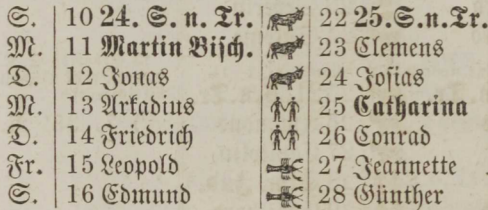 S. 10 24. S. n. Tr. 22 25. S. n. Tr.
M. 11 Martin Bisch. 23 Clemens
D. 12 Jonas 24 Josias
M. 13 Arkadius 25 Catharina
D. 14 Friedrich 26 Conrad
Fr. 15 Leopold 27 Jeannette
S. 16 Edmund 28 Günther